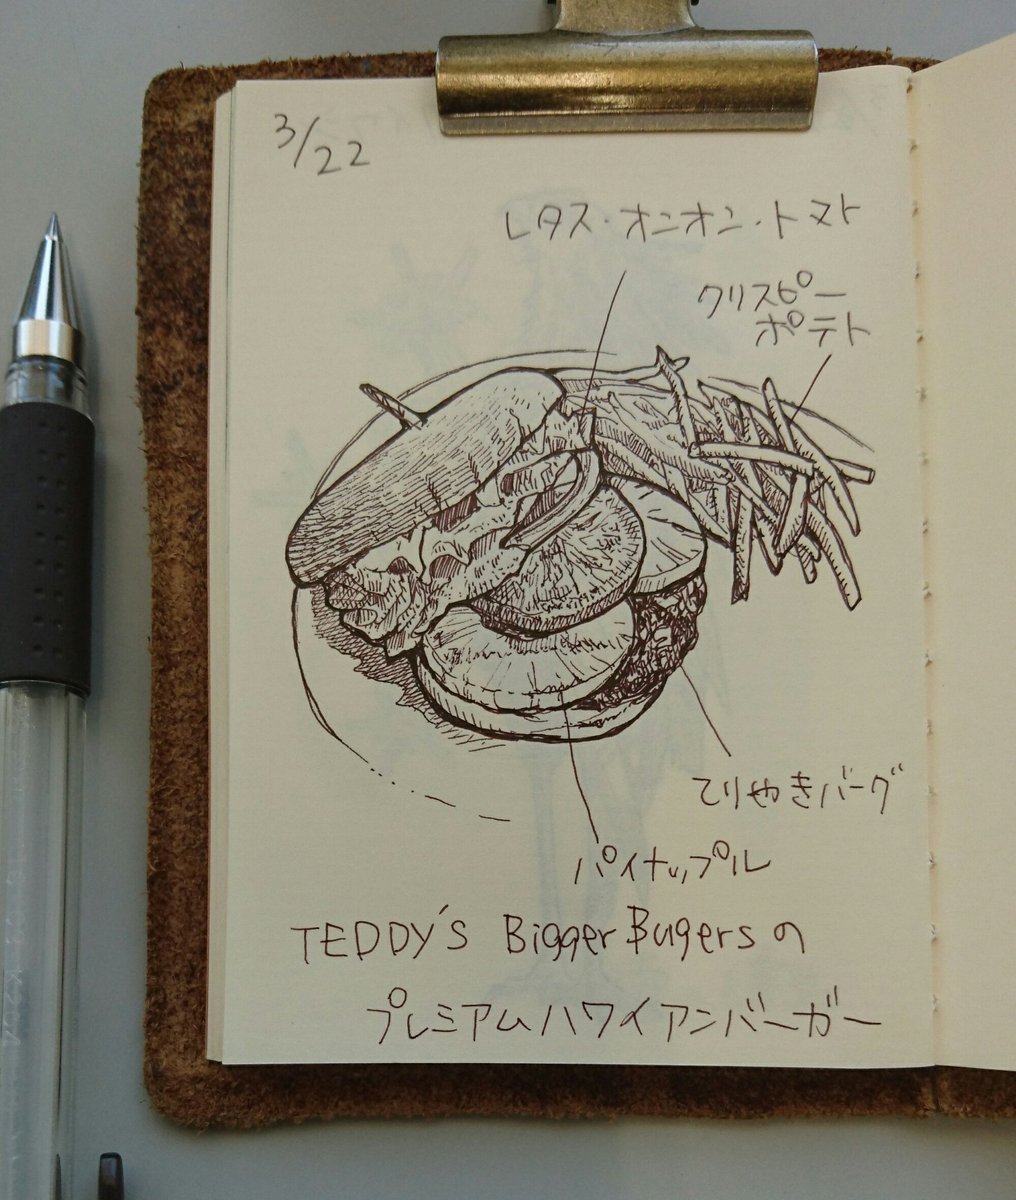 3/22
レタス・オニオン・トマト
クリスピー
ポテト
てりやきバーグ
パイナップル
TEDDY'S Bigger Bugersの
プレミアムハワイアンバーガー